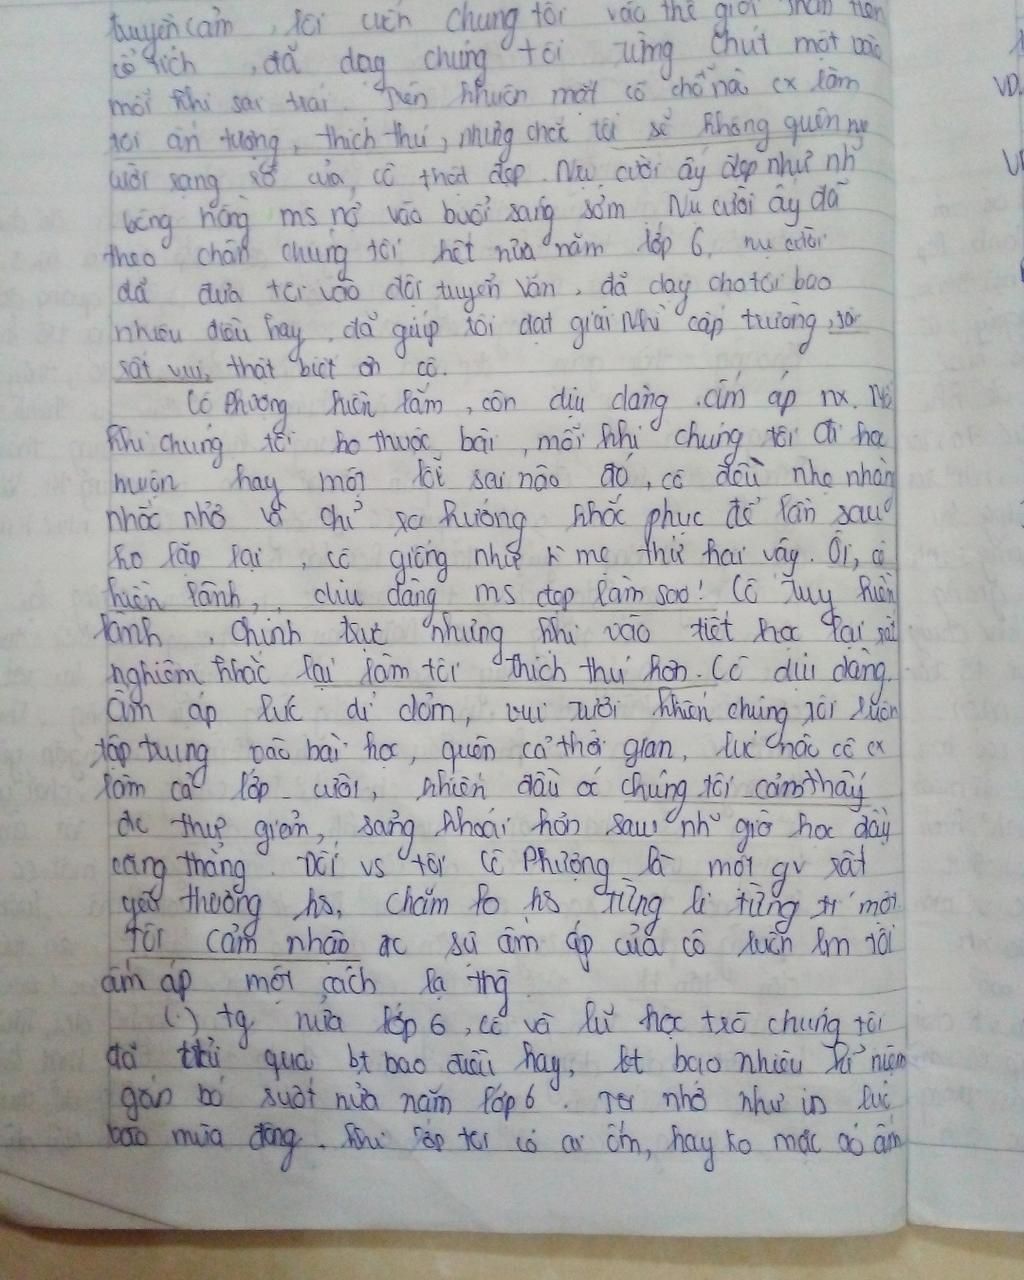 truyền cảm, lôi cuốn chúng tôi vào thế giới thần tiên
cổ tích, đã dạy chúng tôi từng chút một vào
mỗi khi sai trái. Trên khuôn mặt cô chỗ nào cx làm
tôi ấn tượng, thích thú, nhưng chắc tôi sẽ không quên nụ
cười rạng rỡ của, cô thật đẹp. Nụ cười ấy đẹp như nh
bông hồng ms nở vào buổi sáng sớm. Nụ cười ấy đã
theo chân chúng tôi hết nửa năm lớp 6, nụ cười
đã đưa tôi vào đội tuyển văn, đã dạy cho tôi bao
nhiêu điều hay, đã giúp tôi đạt giải Nhì cấp trường, tôi
rất vui, thật biết ơn cô.
Cô Phượng hiền lắm, còn dịu dàng, ấm áp nx. Mỗi
khi chúng tôi ko thuộc bài, mỗi khi chúng tôi đi học
muộn hay một lỗi sai nào đó, cô đều nhẹ nhàn
nhắc nhở và chỉ ra hướng khắc phục để lần sau
ko lặp lại, cô giống như mẹ thứ hai vậy. Ôi, cô
hiền lành, dịu dàng ms đẹp làm sao! Cô tuy hiền
lành, chính trực nhưng khi vào tiết học lại rất
nghiêm khắc lại làm tôi thích thú hơn. Cô dịu dàng
ấm áp lúc dí dỏm, vui tươi khiến chúng tôi luôn
tập trung vào bài học, quên cả thời gian, lúc nào cô cx
làm cả lớp cười, khiến đầu óc chúng tôi cảm thấy
đc thư giản, sảng khoái hơn sau nh~ giờ học đầy
căng thẳng. Đối vs tôi cô Phượng là một gv rất
yêu thương hs, chăm lo hs từng li từng tí một.
Tôi cảm nhận đc sự ấm áp của cô luôn lm tôi
ấm áp một cách lạ thg
(.) tg nửa lớp 6, cô và lũ học trò chúng tôi
đã trải qua bt bao điều hay, bt bao nhiêu kỉ niệm
gắn bó suốt nửa năm lớp 6. Tôi nhớ như in lúc
vào mùa đông. Khi lớp tôi có ai ốm, hay ko mặc áo ấm
VD.